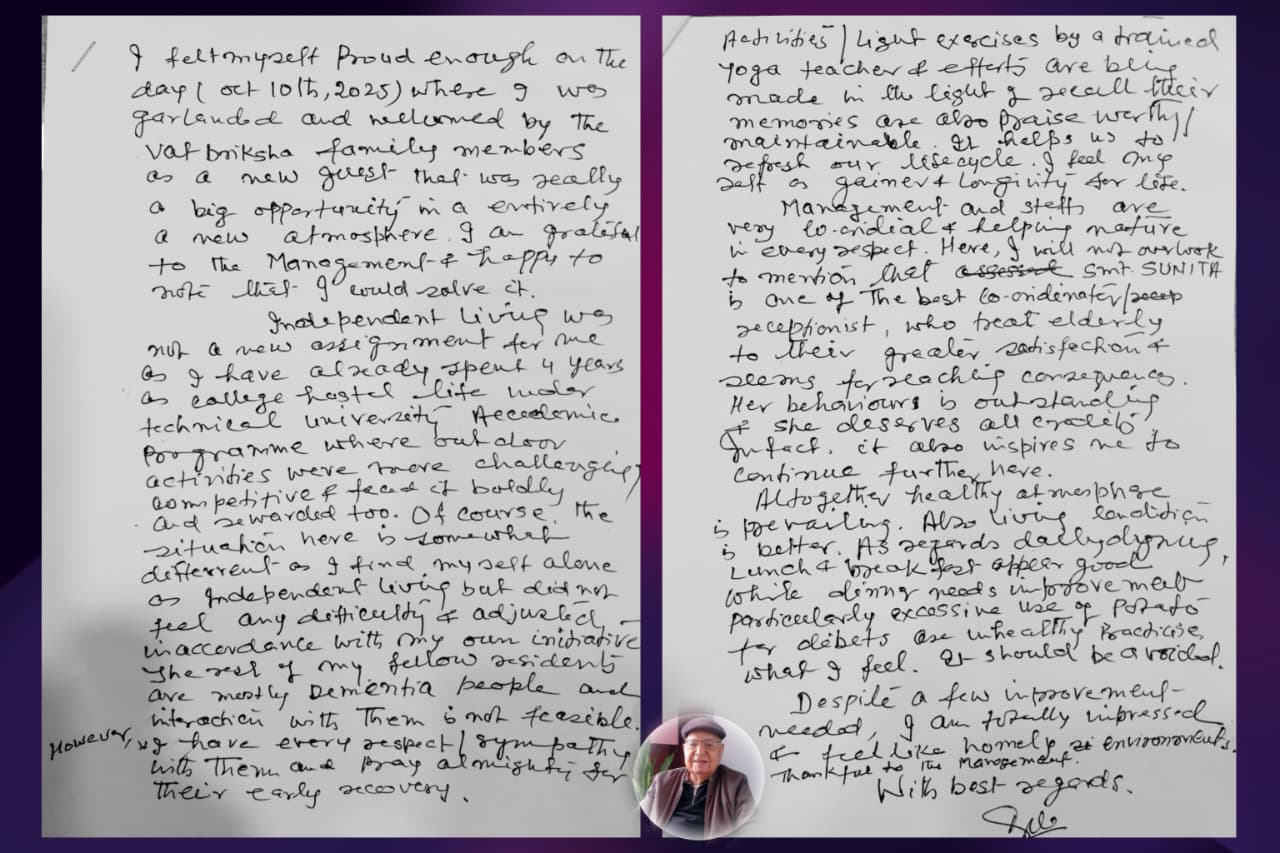 I felt myself Proud enough on the
day (oct 10th, 2025) where I was
garlanded and welcomed by the
Vat briksha family members
as a new guest that was really
a big opportunity in a entirely
a new atmosphere. I am grateful
to the Management & happy to
note that I could solve it.
Independent living was
not a new assignment for me
as I have already spent 4 years
as college hostel life under
technical university Accedemic
programme where outdoor
activities were more challenging,
competitive & faced it boldly
and rewarded too. Of course, the
situation here is somewhat
different as I find myself alone
as Independent living but did not
feel any difficulty & adjusted
in accordance with my own initiative
The rest of my fellow residents
are mostly Dementia people and
interaction with Them is not feasible.
However, I have every respect/sympathy
with Them and pray almighty for
their early recovery.
Activities/Light exercises by a trained
yoga teacher & efforts are being
made in the light of recall their
memories are also praise worthy/
maintainable. It helps us to
refresh our lifecycle. I feel my
self as gainer & Longivity for life.
Management and steffs are
very co-ordial & helping nature
in every respect. Here, I will not overlook
to mention that Smt. SUNITA
is one of The best co-ordinator/
receptionist, who treat elderly
to their greater satisfection &
seems far reaching consequences.
Her behaviours is outstanding
& she deserves all credits.
Infact, it also inspires me to
continue further here.
Altogether healthy atmosphere
is prevailing. Also living condition
is better. As regards daily dyning,
Lunch & breakfast appear good
while dinner needs improvement
particularly excessive use of Potato
for debets are unhealthy practices
what I feel. It should be avoided.
Despite a few improvement
needed, I am totally impressed
& feel like homely environments.
Thankful to the Management.
With best regards.